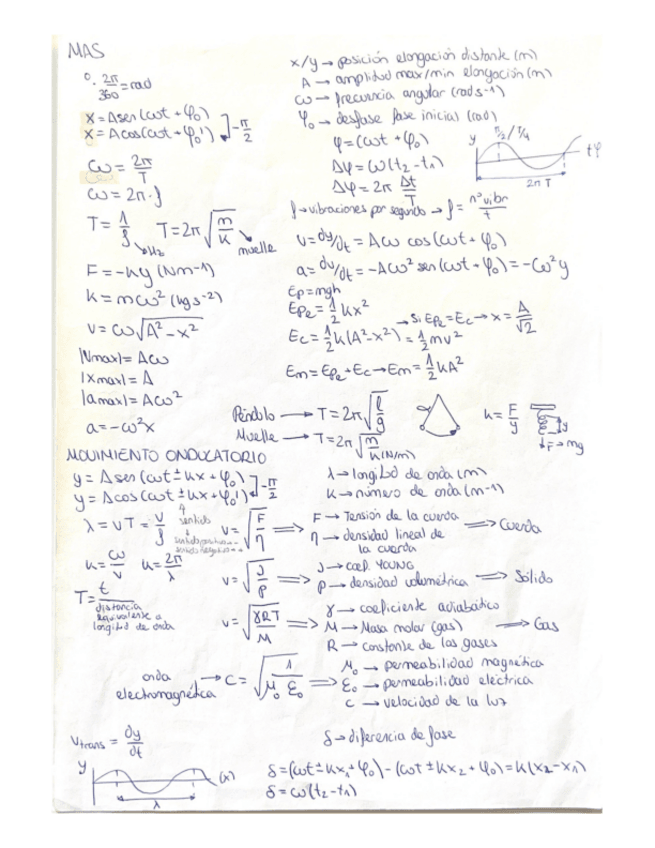 MAS
° · 2π/360 = rad
x = A sen(ωt + φ₀)
x = A cos(ωt + φ₀') ] -π/2
ω = 2π/T
ω = 2π · f
T = 1/f → Hz T = 2π √(m/k) → muelle
F = -ky (Nm-1)
k = mω² (kg s-2)
v = ω √(A² - x²)
|Vmax| = Aω
|xmax| = A
|amax| = Aω²
a = -ω²x
x/y → posición elongación distante (m)
A → amplitud max/min elongación (m)
ω → frecuencia angular (rad s-1)
φ₀ → desfase fase inicial (rad)
φ = (ωt + φ₀)
Δφ = ω(t₂ - t₁)
Δφ = 2π Δt/T
y π/2 / T/4 t φ
2π T
f → vibraciones por segundo → f = nº vibr/t
v = dy/dt = Aω cos(ωt + φ₀)
a = dv/dt = -Aω² sen(ωt + φ₀) = -ω² y
Ep = mgh
Epe = 1/2 kx²
→ Si Epe = Ec → x = A/√2
Ec = 1/2 k(A² - x²) = 1/2 mv²
Em = Epe + Ec → Em = 1/2 kA²
Péndulo → T = 2π √(l/g)
Muelle → T = 2π √(m/k) (N/m)
k = F/y
y
F → mg
MOVIMIENTO ONDULATORIO
y = A sen(ωt ± kx + φ₀)
y = A cos(ωt ± kx + φ₀') ] -π/2
sentido
λ = vT = v/f
k = ω/v k = 2π/λ
T = t/distancia equivalente a longitud de onda
λ → longitud de onda (m)
k → número de onda (m-1)
v = √(F/η) ⇒ F → Tensión de la cuerda
η → densidad lineal de
la cuerda
⇒ Cuerda
v = √(J/ρ) ⇒ J → coef. YOUNG
ρ → densidad volumétrica ⇒ Sólido
v = √(γRT/M) ⇒ γ → coeficiente adiabático
M → Masa molar (gas) ⇒ Gas
R → constante de los gases
onda
electromagnética → c = √(1/μ₀ ε₀) ⇒ μ₀ → permeabilidad magnética
ε₀ → permeabilidad eléctrica
c → velocidad de la luz
Vtrans = dy/dt
δ → diferencia de fase
y (x)
λ
δ = (ωt ± kx₁ + φ₀) - (ωt ± kx₂ + φ₀) = k(x₂ - x₁)
δ = ω(t₂ - t₁)